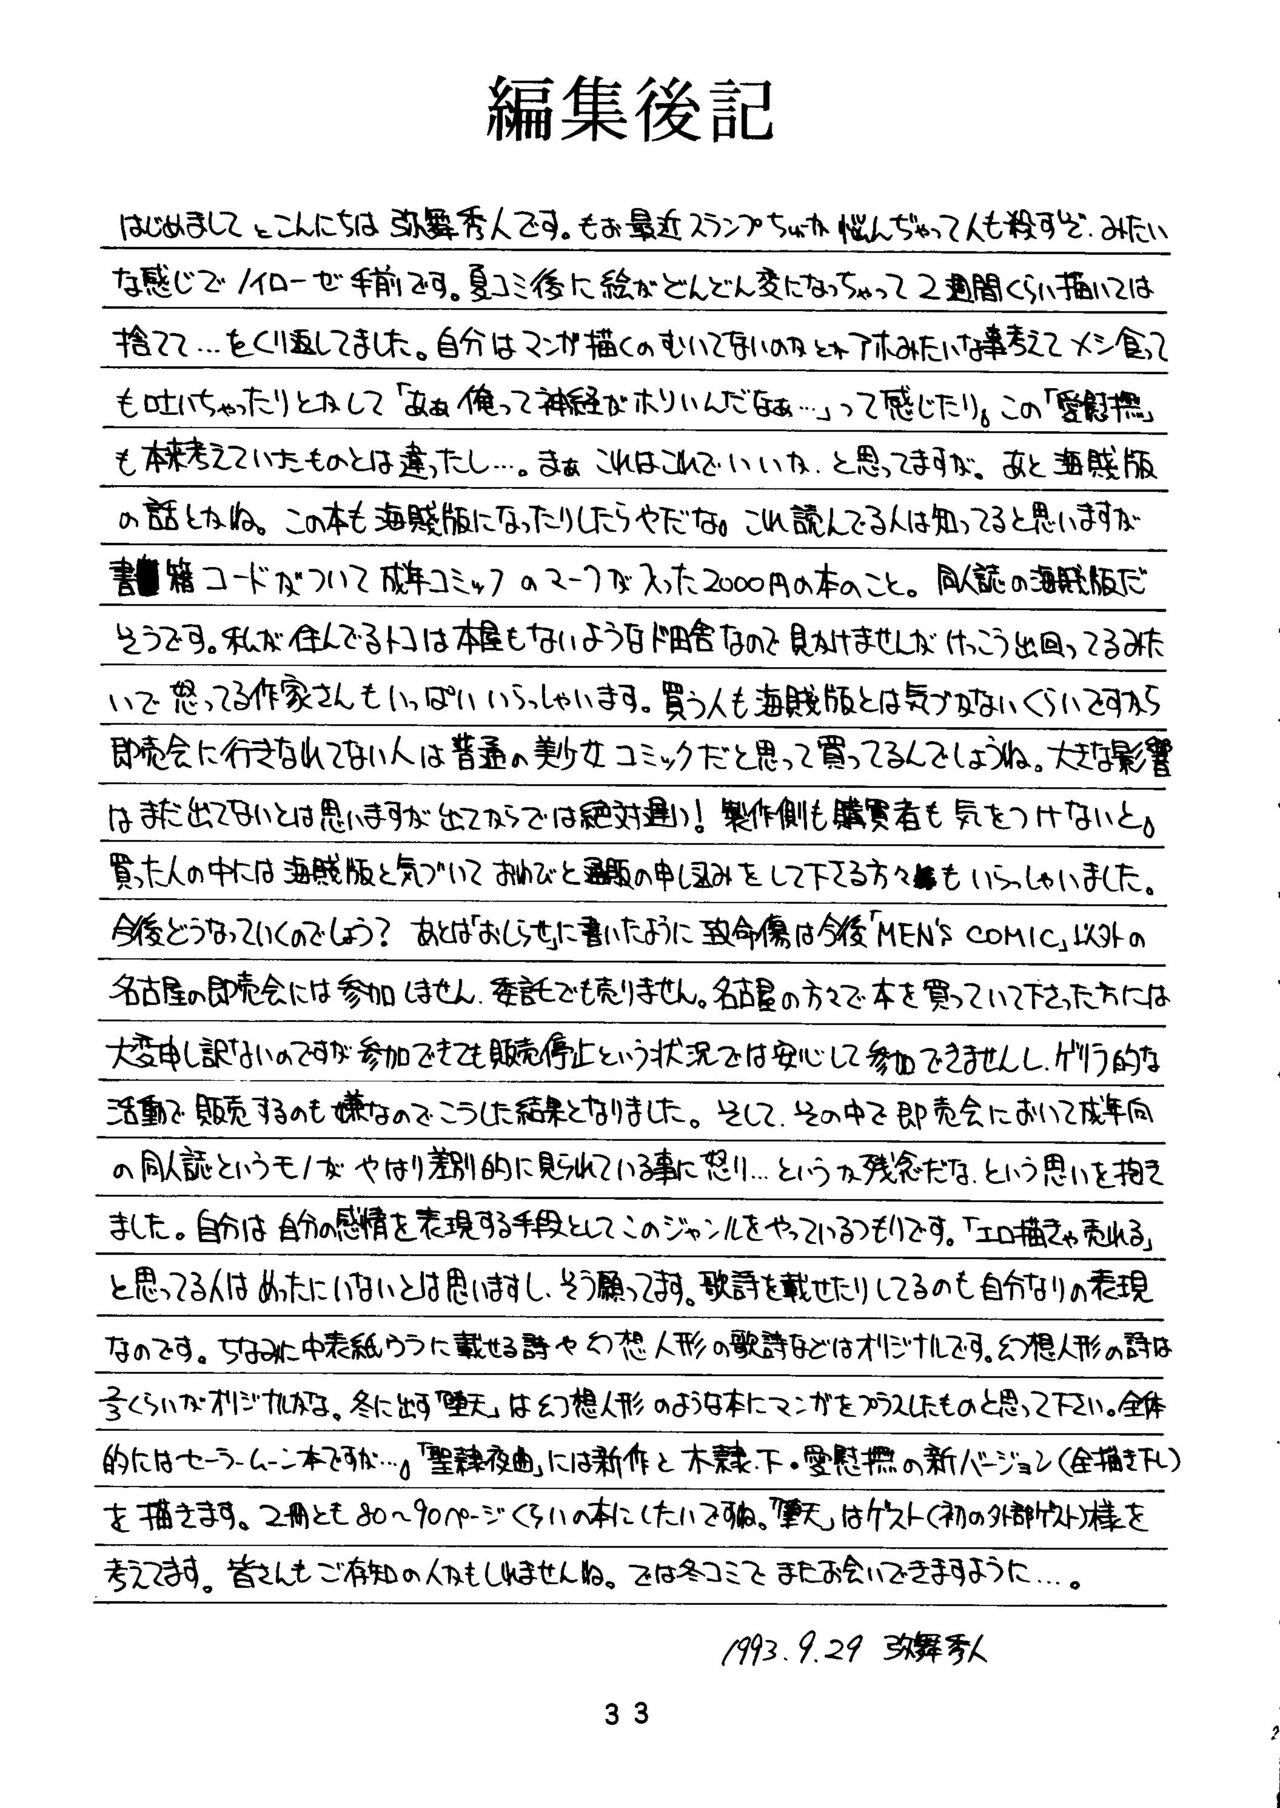 編集後記
はじめまして とこんにちは 弥舞秀人です。もお最近スランプちゅーか 悩んぢゃって人も殺すぞ、みたい
な感じでノイローゼ手前です。夏コミ後に絵がどんどん変になっちゃって2週間くらい描いては
捨てて…をくり返してました。自分はマンガ描くのむいてないのかとかアホみたいな事考えてメシ食って
も吐いちゃったりとかして「あぁ俺って神経がホソいんだなぁ…」って感じたり。この「愛慰撫」
も本来考えていたものとは違ったし…。まぁ これはこれでいいか、と思ってますが。あと 海賊版
の話とかね。この本も海賊版になったりしたらやだな。これ読んでる人は知ってると思いますが
書籍コードがついて成年コミックのマークが入った2000円の本のこと。同人誌の海賊版だ
そうです。私が住んでるトコは本屋もないようなド田舎なので見かけませんがけっこう出回ってるみた
いで 怒ってる作家さんもいっぱいいらっしゃいます。買う人も海賊版とは気づかないくらいですから
即売会に行きなれてない人は普通の美少女コミックだと思って買ってるんでしょうね。大きな影響
はまだ出てないとは思いますが出てからでは絶対遅い！製作側も購買者も気をつけないと。
買った人の中には海賊版と気づいて おわびと通販の申し込みをして下さる方々もいらっしゃいました。
今後どうなっていくのでしょう？ あとは「おしらせ」に書いたように致命傷は今後「MEN'S COMIC」以外の
名古屋の即売会には参加しません、委託でも売りません。名古屋の方々で本を買っていて下さった方には
大変申し訳ないのですが参加できても販売停止という状況では安心して参加できませんし、ゲリラ的な
活動で販売するのも嫌なのでこうした結果となりました。そして、その中で即売会において成年向
の同人誌というモノがやはり差別的に見られている事に怒り…というか残念だな、という思いを抱き
ました。自分は自分の感情を表現する手段としてこのジャンルをやっているつもりです。「エロ描きゃ売れる」
と思ってる人はめったにいないとは思いますし、そう願ってます。歌詩を載せたりしてるのも自分なりの表現
なのです。ちなみに中表紙ウラに載せる詩や幻想人形の歌詩などはオリジナルです。幻想人形の詩は
2/3くらいがオリジナルかな。冬に出す「堕天」は幻想人形のような本にマンガをプラスしたものと思って下さい。全体
的にはセーラームーン本ですが…。「聖隷夜曲」には新作と 木隷、下・愛慰撫の新バージョン(全描き下し)
を描きます。2冊とも80～90ページくらいの本にしたいですね。「堕天」はゲスト(初の外部ゲスト)様を
考えてます。皆さんもご存知の人かもしれませんね。では冬コミで またお会いできますように…。
1993.9.29 弥舞秀人
33